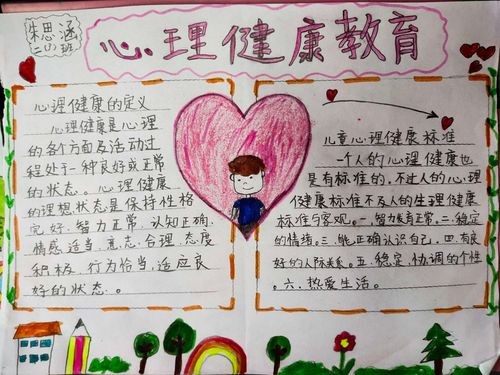 朱思涵
二(1)班
心理健康教育
心理健康的定义
心理健康是心理
的各个方面及活动过
程处于一种良好或正常
的状态。心理健康
的理想状态是保持性格
完好、智力正常、认知正确、
情感适当、意志合理、态度
积极、行为恰当、适应良
好的状态。
儿童心理健康标准
一个人的心理健康也
是有标准的。不过人的心理
健康标准不及人的生理健康
标准与客观。一.智力发育正常.二.稳定
的情绪。三.能正确认识自己.四.有良
好的人际关系。五.稳定、协调的个性
。六.热爱生活。